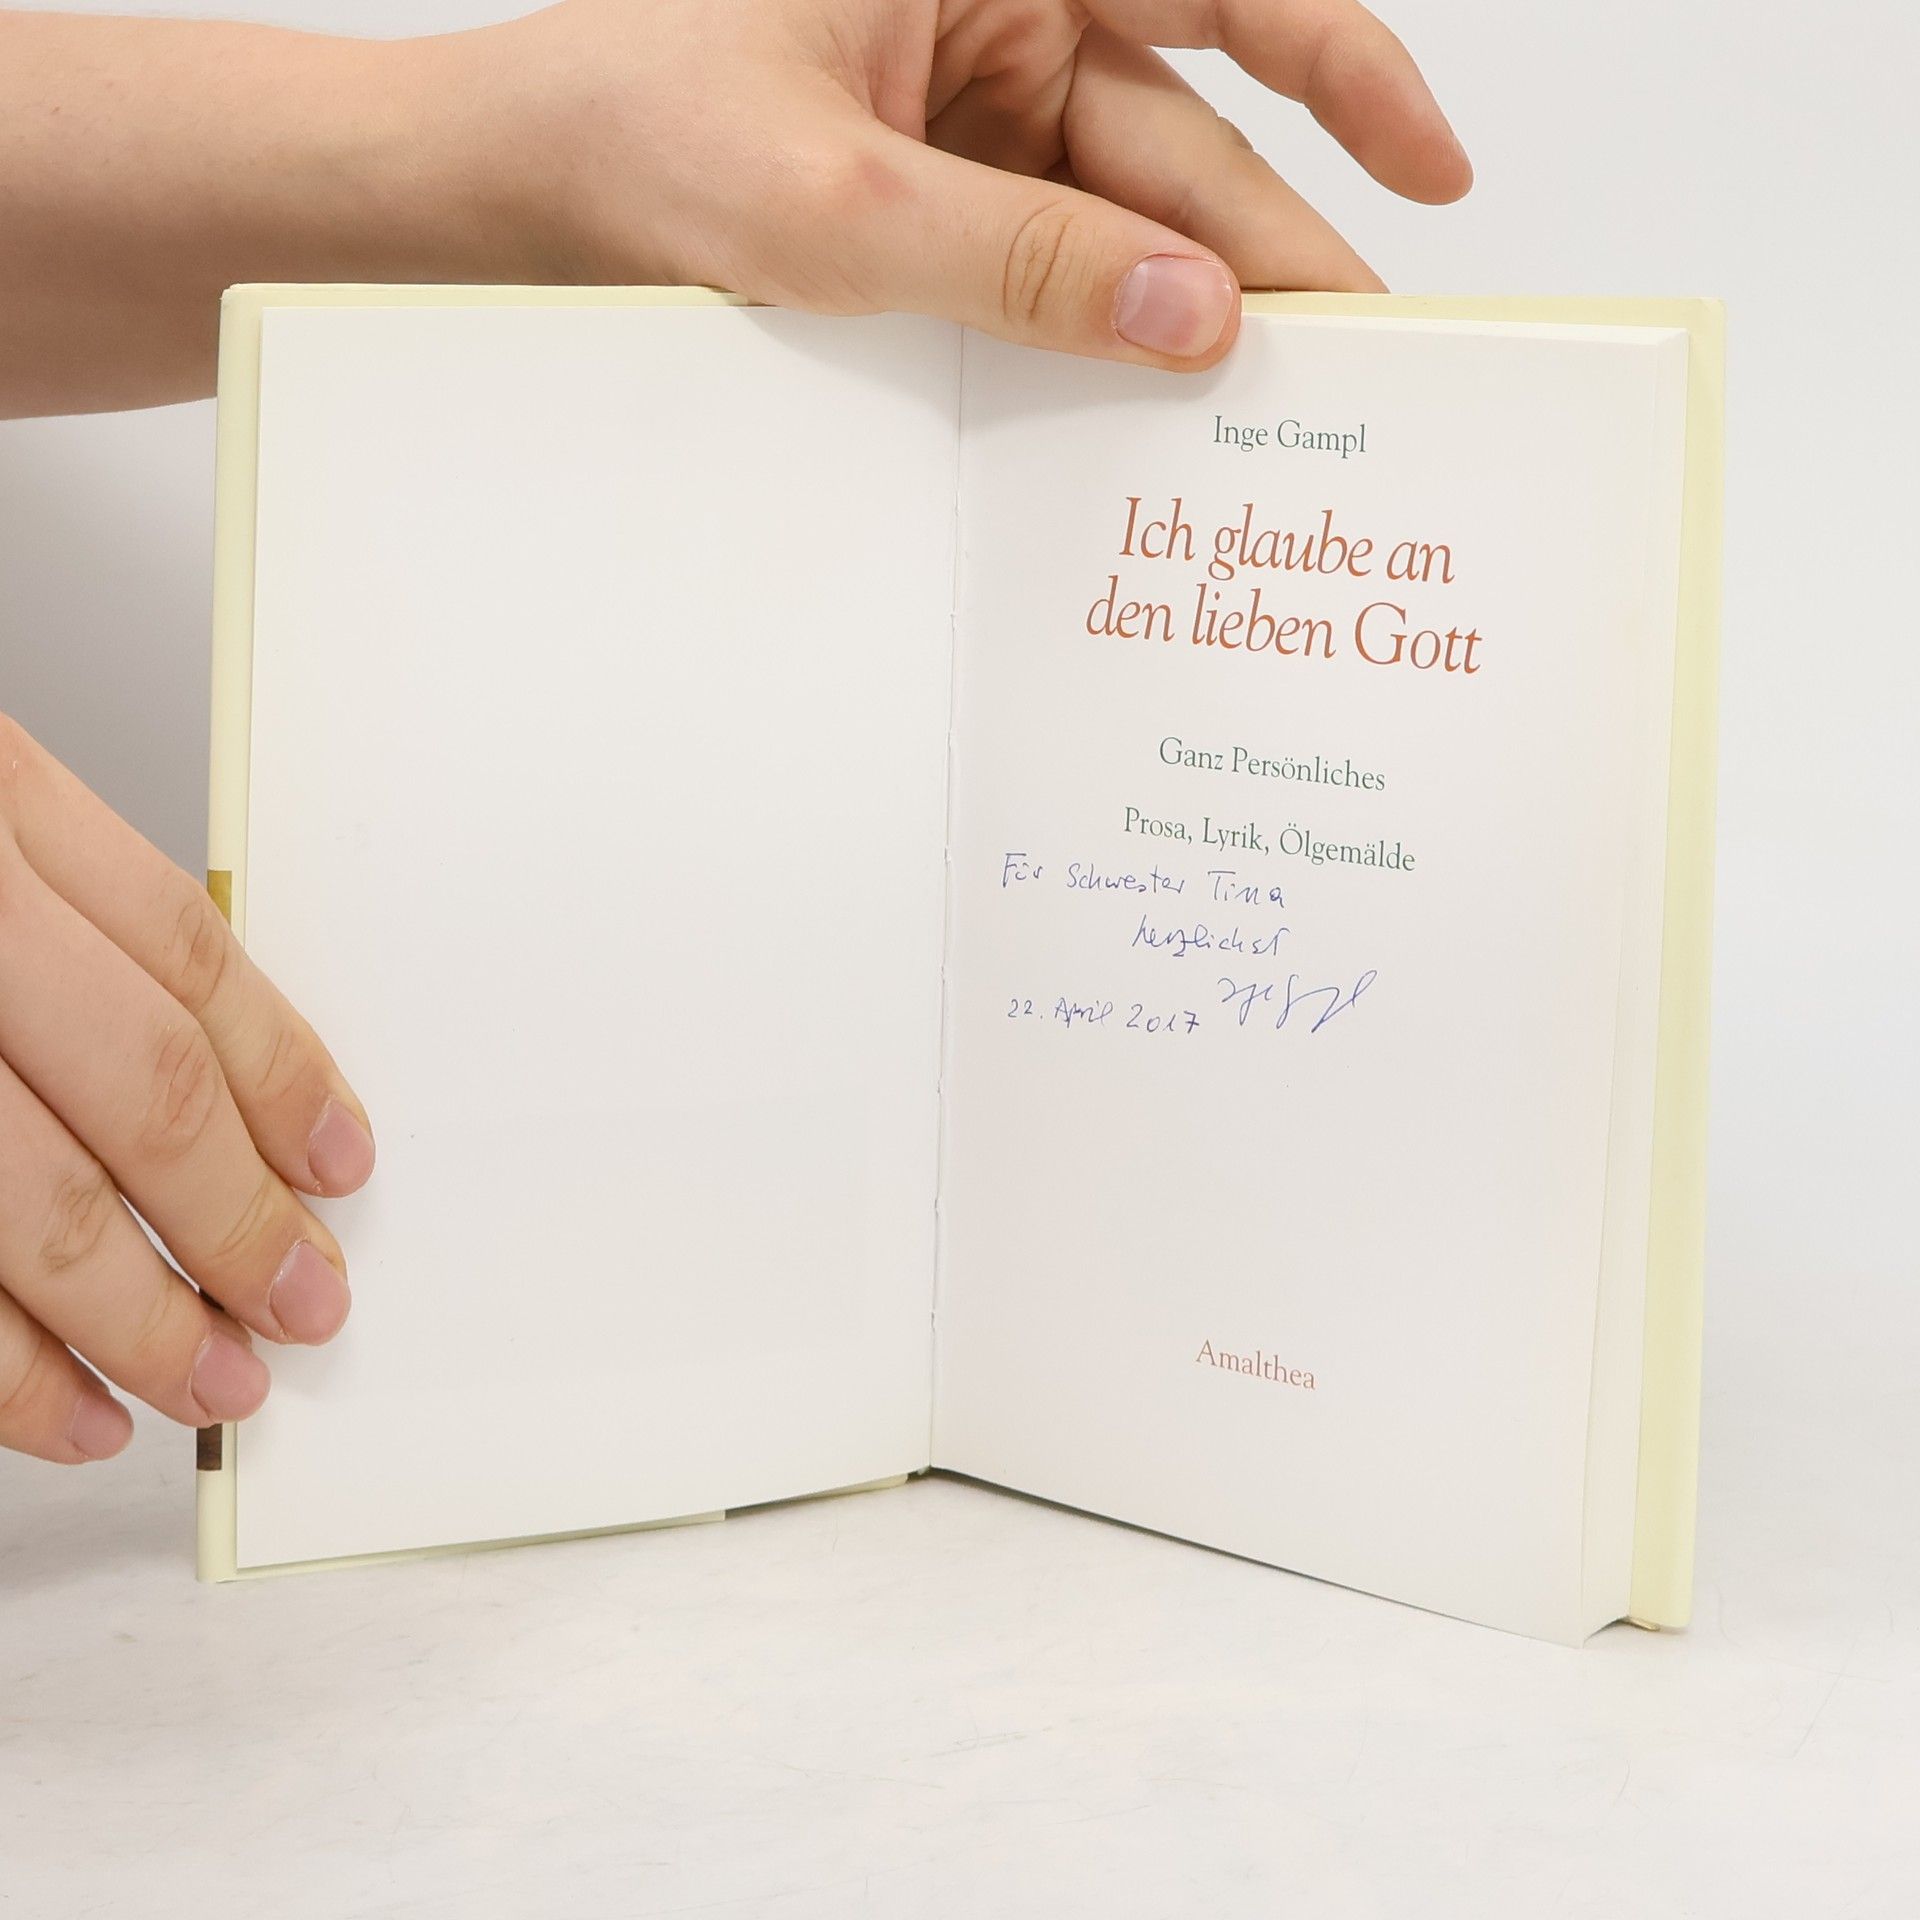 Inge Gampl
Ich glaube an
den lieben Gott
Ganz Persönliches
Prosa, Lyrik, Ölgemälde
Für Schwester Tina
herzlichst
22. April 2017
Amalthea